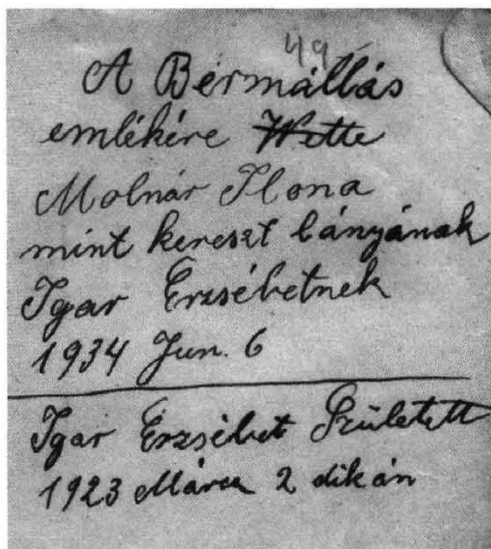 49
A Bérmállás
emlékére Wette
Molnár Ilona
mint kereszt lányának
Igar Erzsébetnek
1934 Jun. 6
Igar Erzsébet Született
1923 Márca 2 dikán